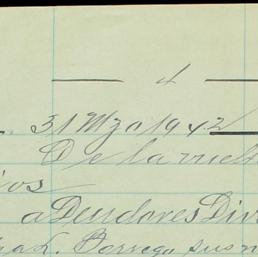 4
31 Mzo 1942
De la vuelt
ios
a Deudores Div
Borrego sus n